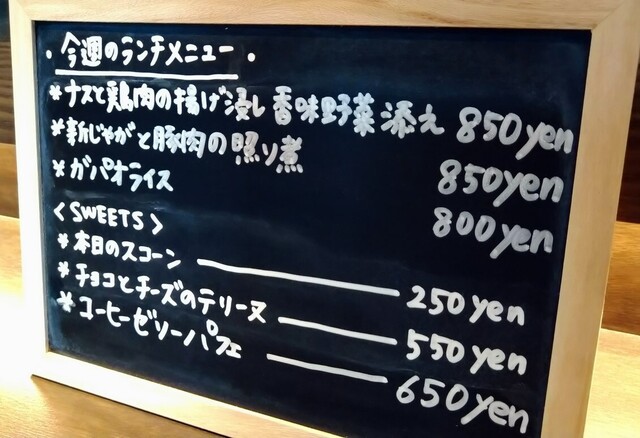 ・今週のランチメニュー・
*ナスと鶏肉の揚げ浸し 香味野菜添え 850yen
*新じゃがと豚肉の照り煮 850yen
*ガパオライス 800yen
<SWEETS>
*本日のスコーン 250yen
*チョコとチーズのテリーヌ 550yen
*コーヒーゼリーパフェ 650yen